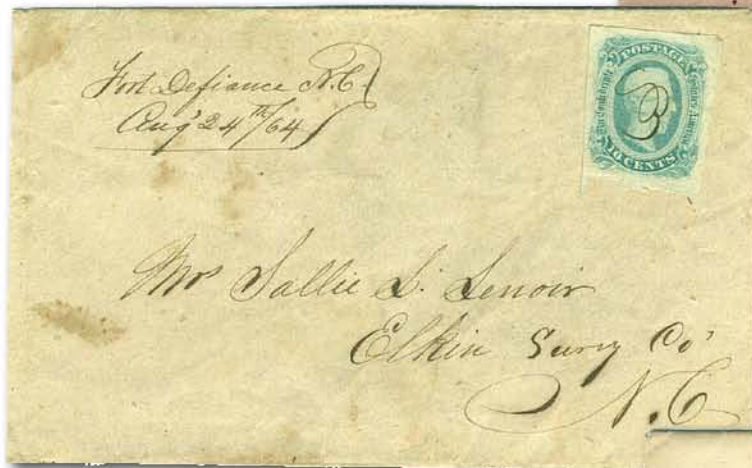 Fort Defiance N.C.
Aug 24th/64
POSTAGE
The Confederate
States America
10 CENTS
Mrs Sallie L. Lenoir
Elkin Surry Co
N.C